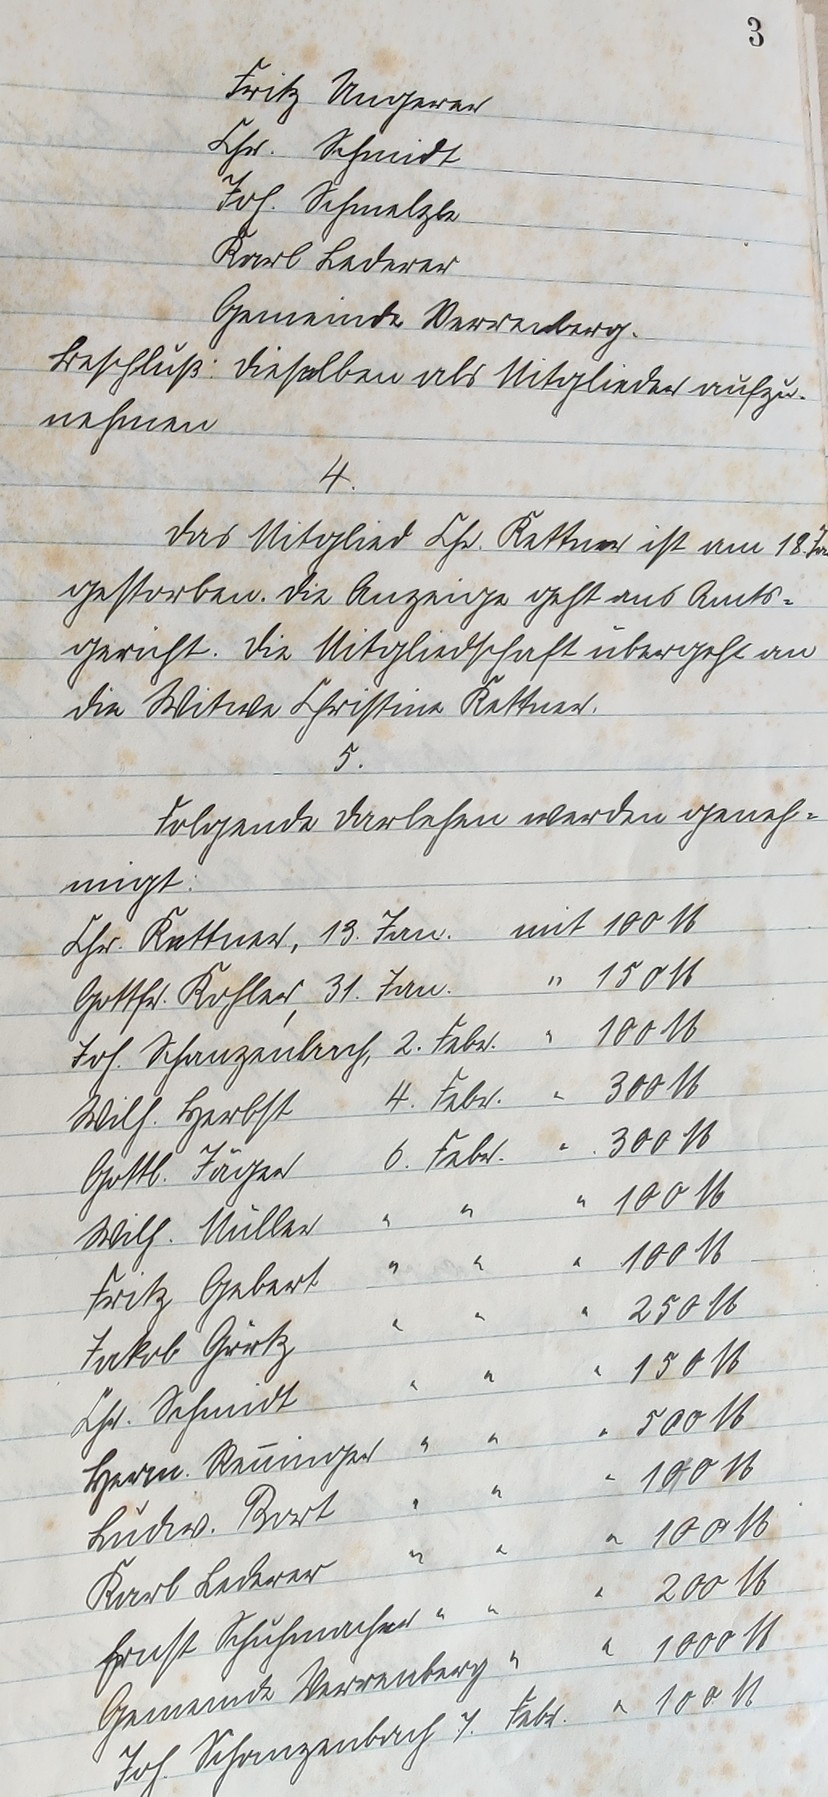 3
Fritz Ungerer
Chr. Schmidt
Joh. Schmelzle
Karl Lederer
Gemeinde Verrenberg.
Beschluß: dieselben als Mitglieder aufzu-
nehmen
4.
Das Mitglied Chr. Kettner ist am 18. Ja
gestorben. Die Anzeige geht ans Amts-
gericht. Die Mitgliedschaft übergeht an
die Witwe Christine Kettner.
5.
Folgende Darlehen werden geneh-
migt:
Chr. Kettner, 13. Jan. mit 100 M
Gottfr. Kohler, 31. Jan. " 150 M
Joh. Schanzenbach, 2. Febr. " 100 M
Wilh. Herbst 4. Febr. " 300 M
Gottl. Jäger 6. Febr. " 300 M
Wilh. Müller " " " 100 M
Fritz Gebert " " " 100 M
Jakob Görtz " " " 250 M
Chr. Schmidt " " " 150 M
Herm. Reninger " " " 500 M
Ludw. Bort " " " 100 M
Karl Lederer " " " 100 M
Ernst Schuhmacher " " " 200 M
Gemeinde Verrenberg " " 1000 M
Joh. Schanzenbach 7. Febr. " 100 M